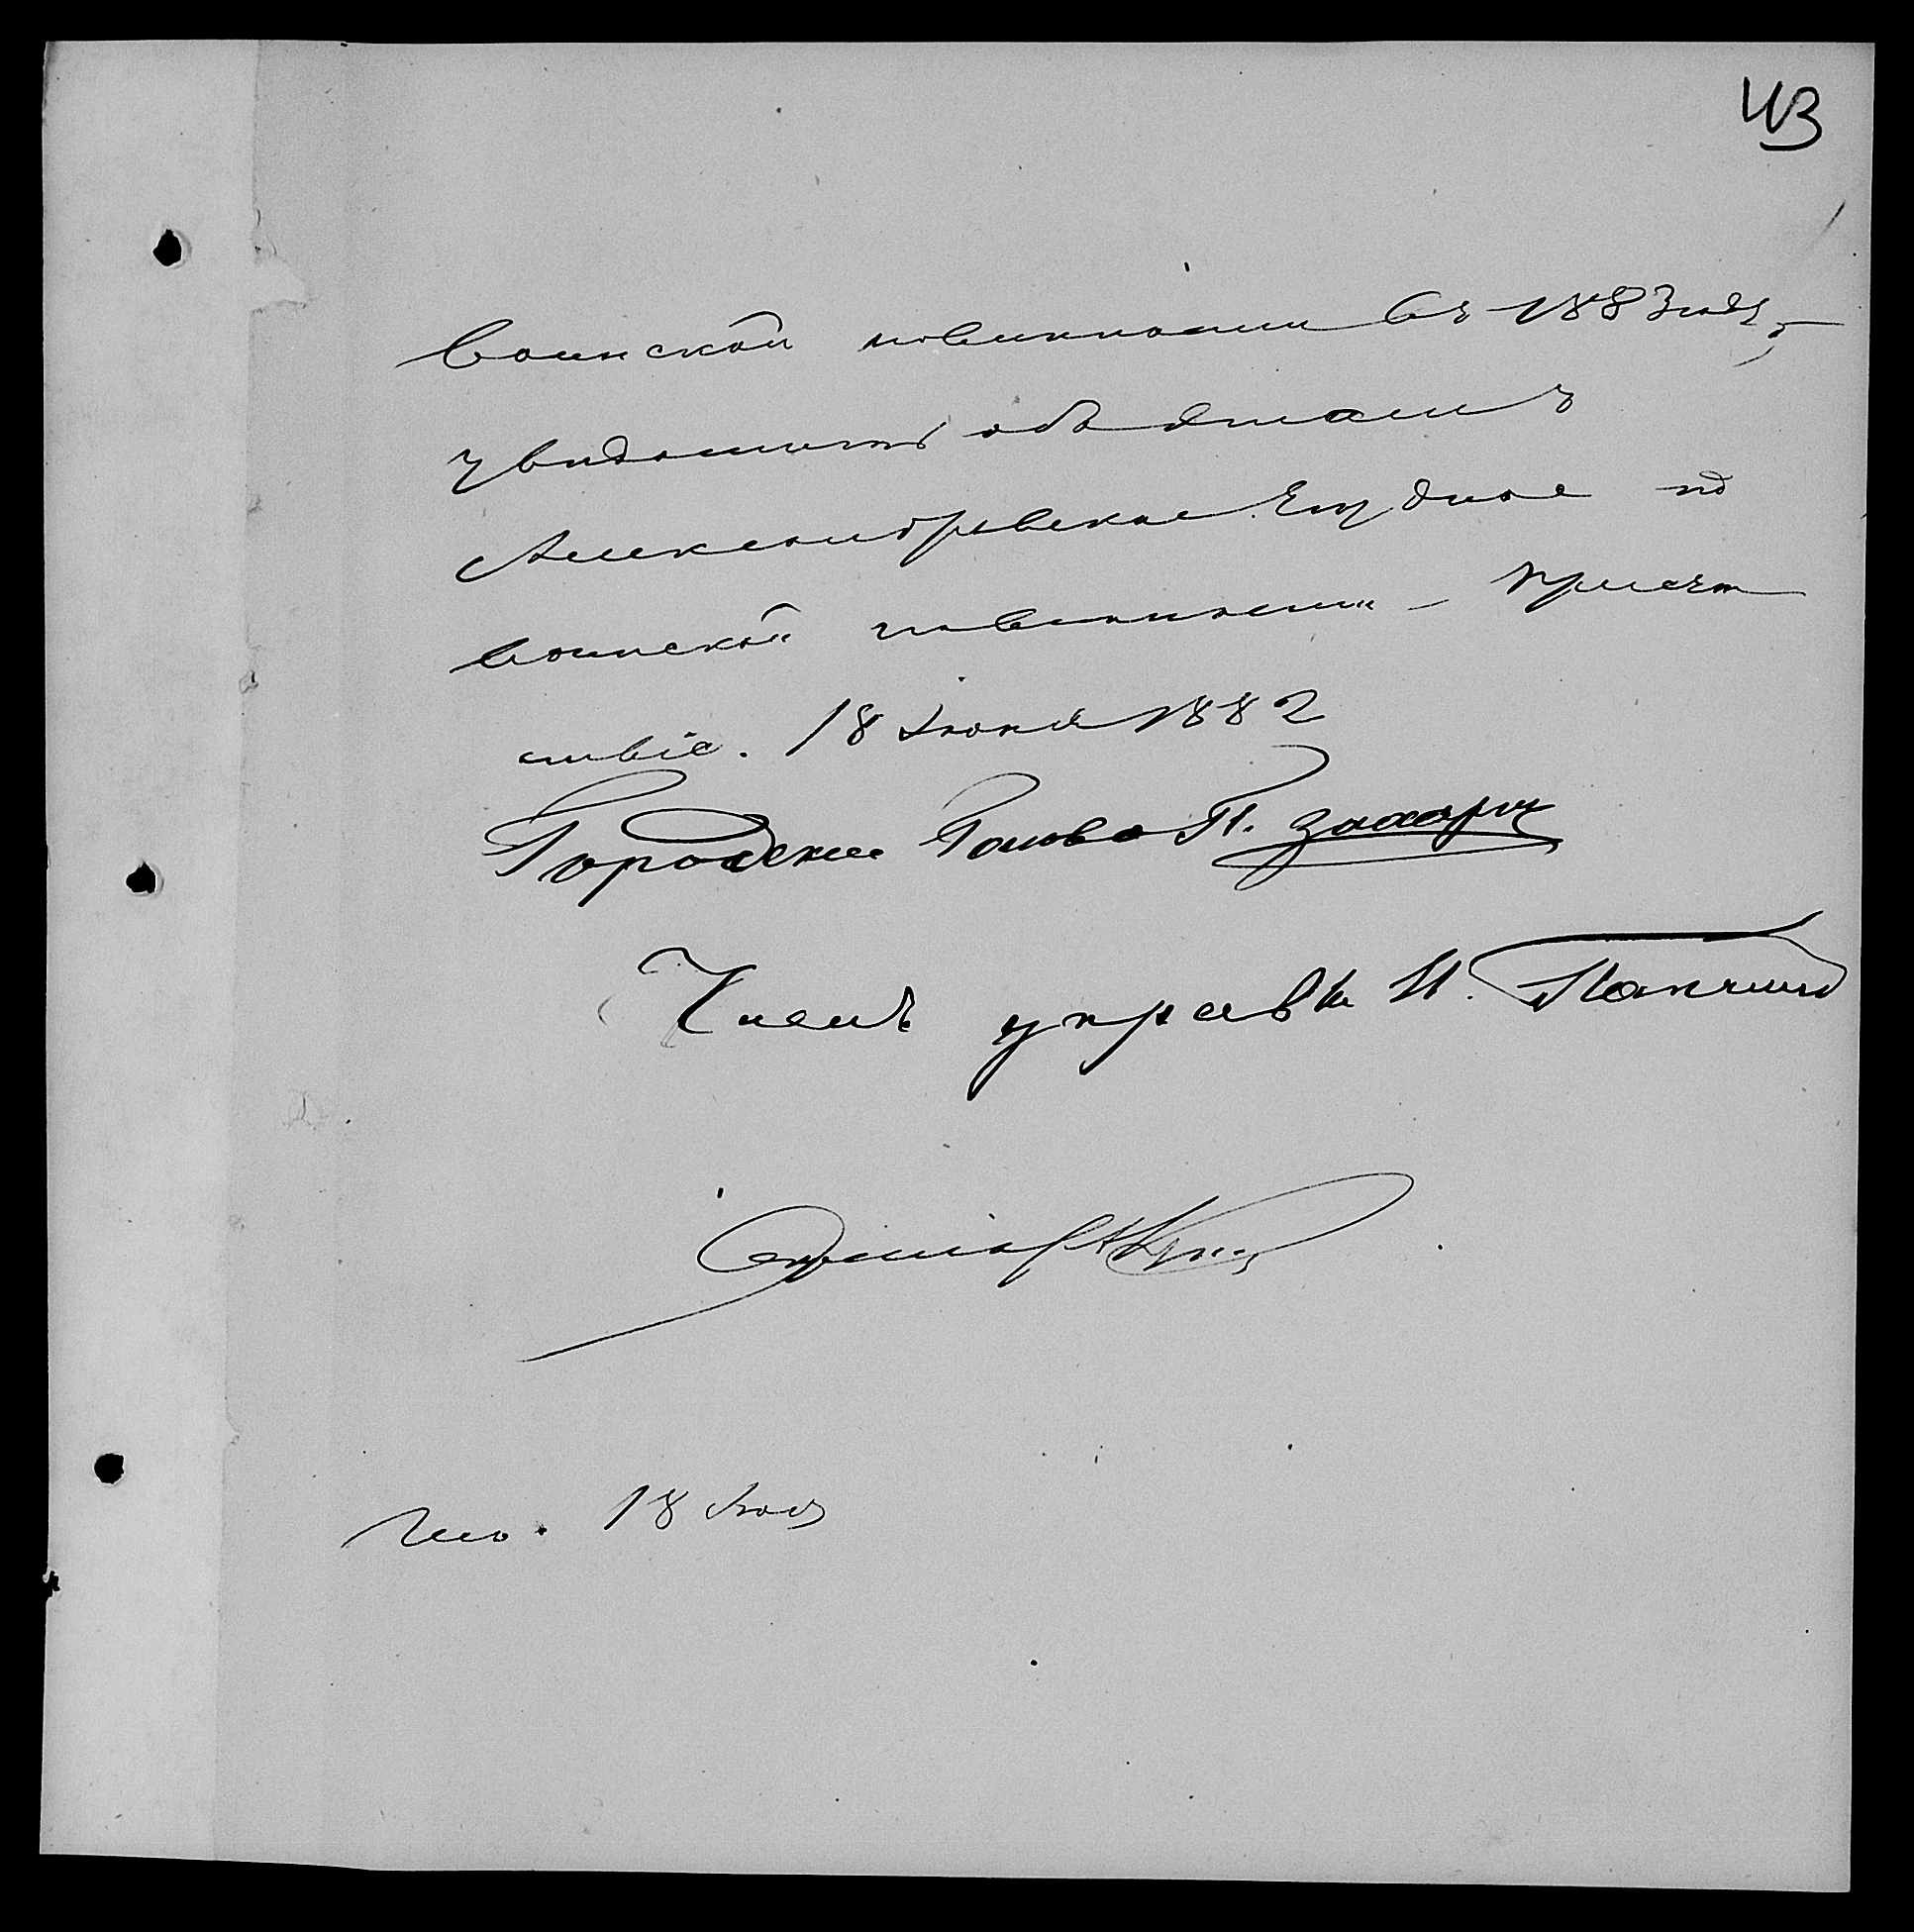 43
воинской повинности въ 1883 году,
увѣдомить объ этомъ
Александровское Уѣздное по
воинской повинности – Присут
ствіе. 18 Іюня 1882
Городской Голова П. Захаро
Членъ управы И. Панчин
Секретарь
Исп. 18 Іюня